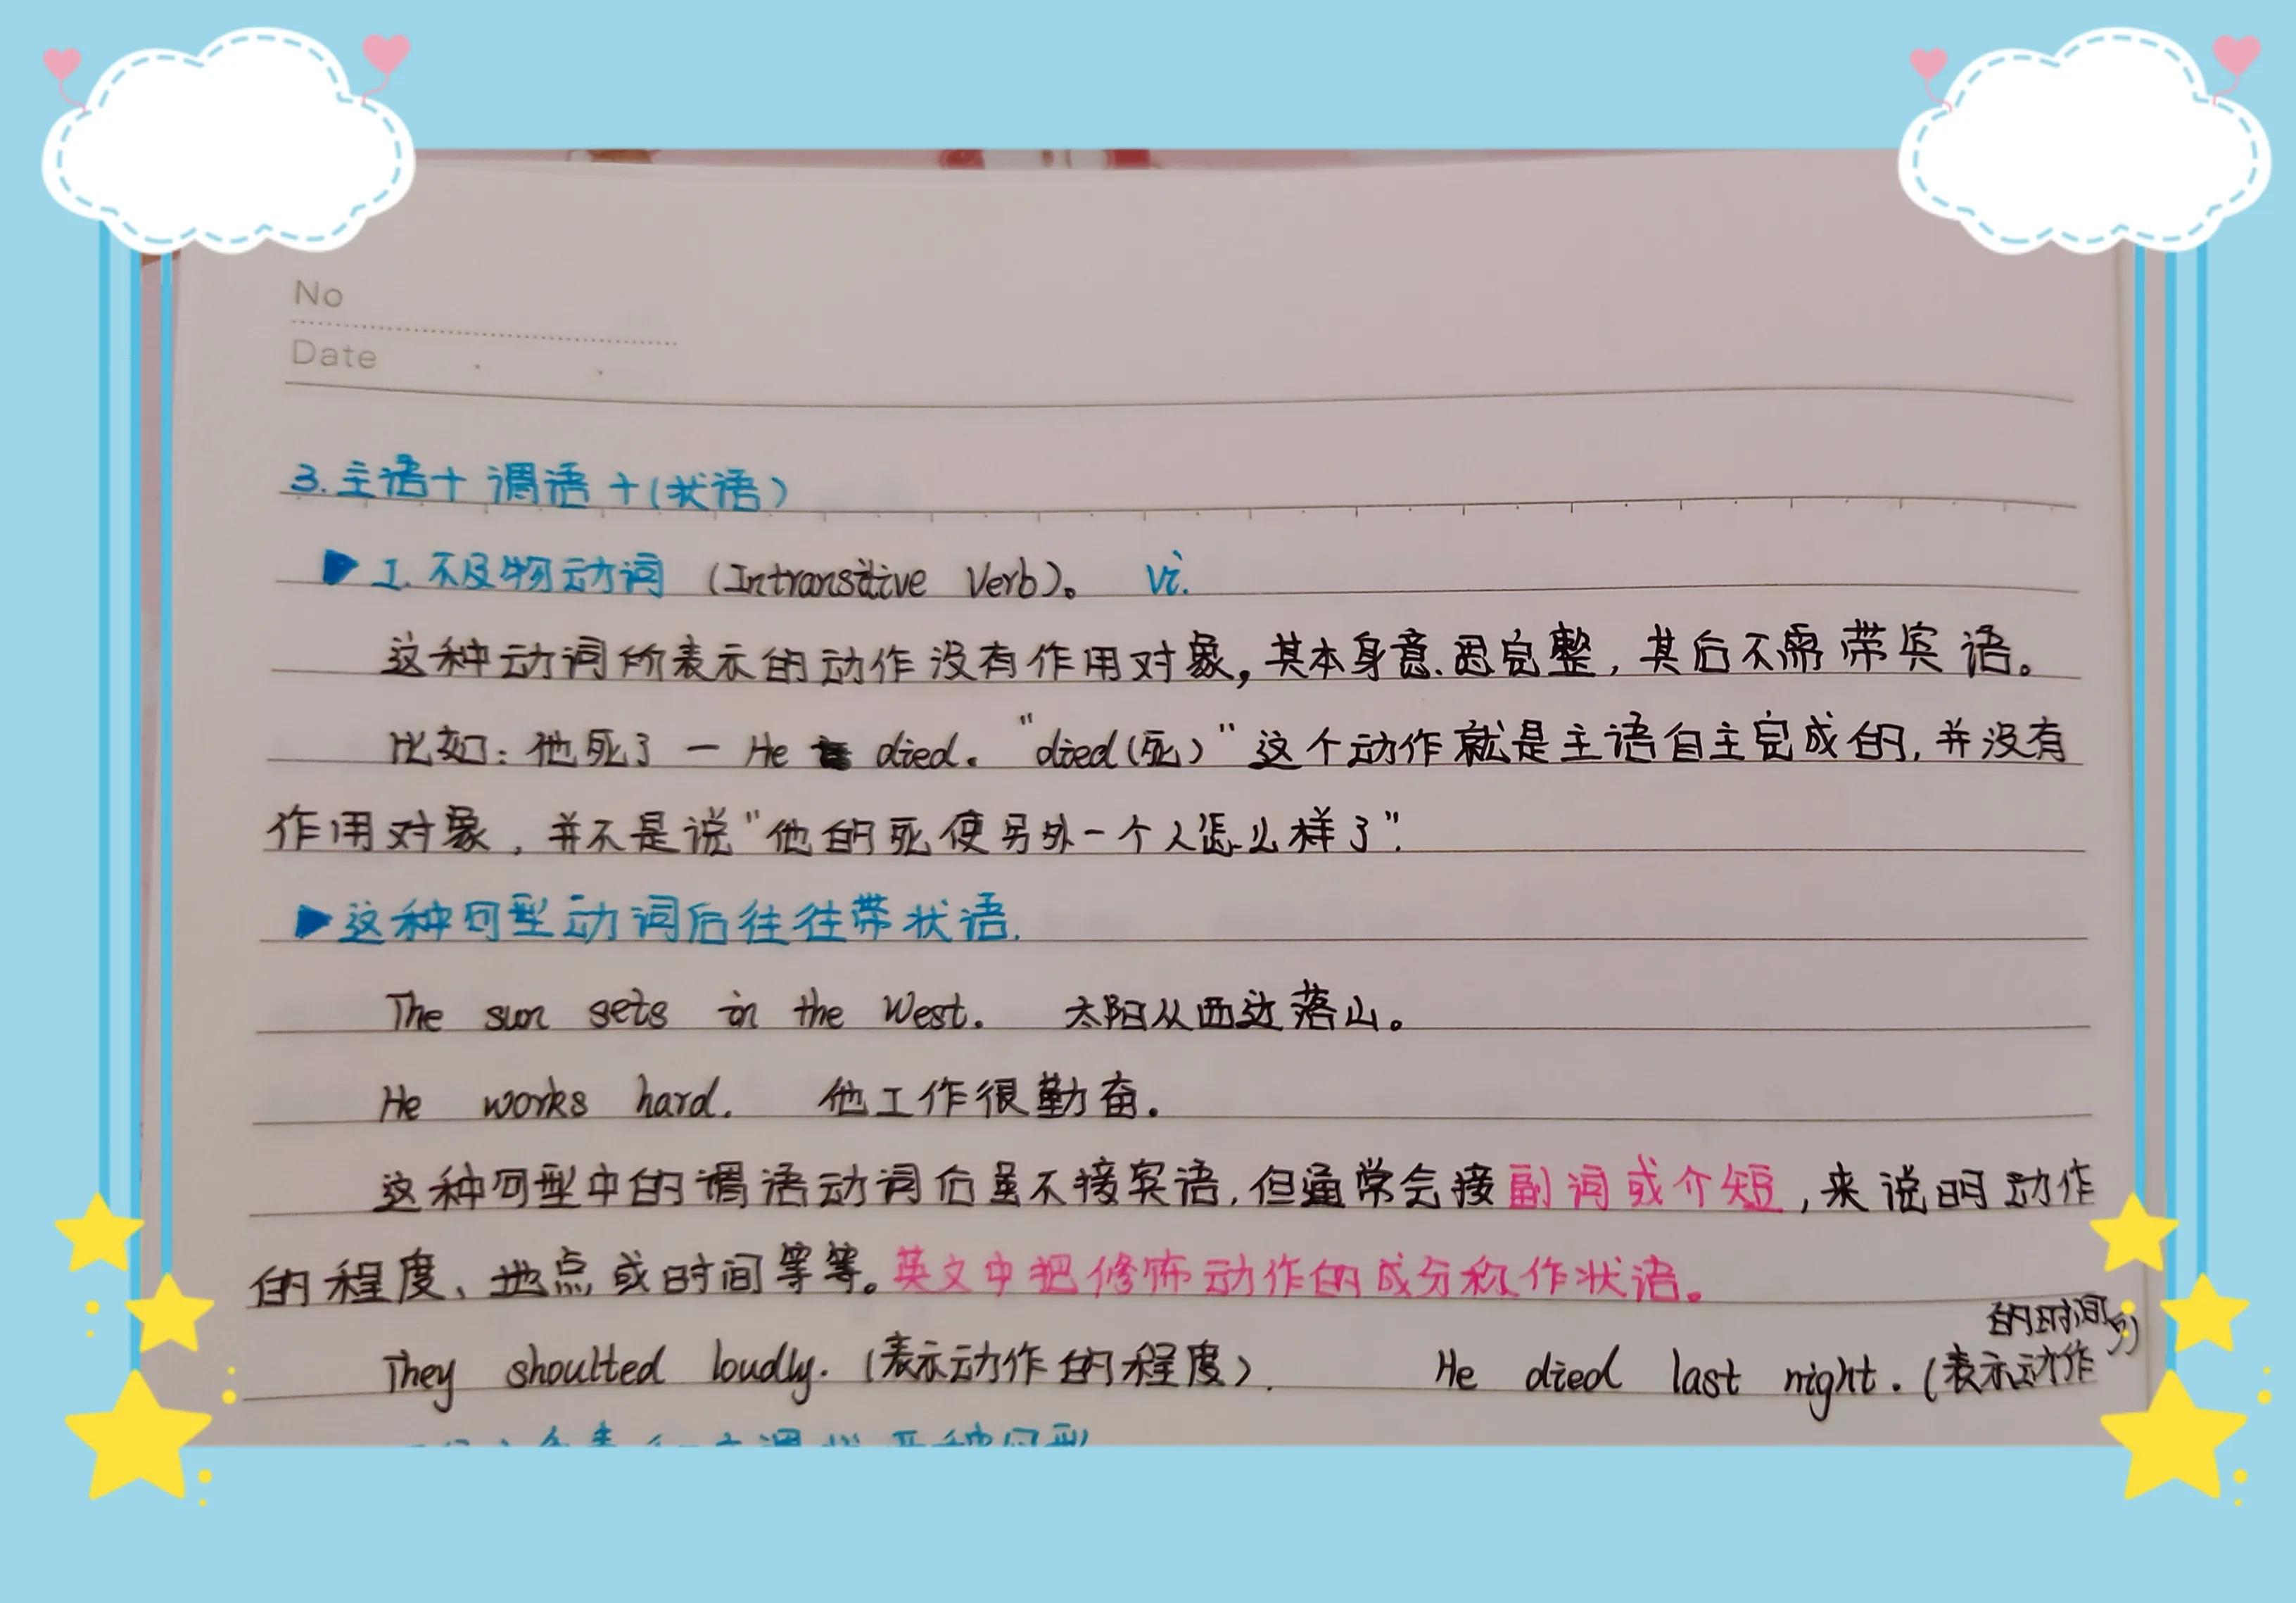 No
Date
3.主语+谓语+(状语)
▶ I.不及物动词 (Intransitive Verb)。 vi.
这种动词所表示的动作没有作用对象,其本身意思完整,其后不需带宾语。
比如:他死了 — He died. "died(死)"这个动作就是主语自主完成的,并没有
作用对象,并不是说"他的死使另外一个人怎么样了".
▶这种句型动词后往往带状语.
The sun sets in the West. 太阳从西边落山。
He works hard. 他工作很勤奋.
这种句型中的谓语动词后虽不接宾语,但通常会接副词或介短,来说明动作
的程度、地点或时间等等。英文中把修饰动作的成分称作状语。
They shoulted loudly. (表示动作的程度). He died last night. (表示动作
的时间)